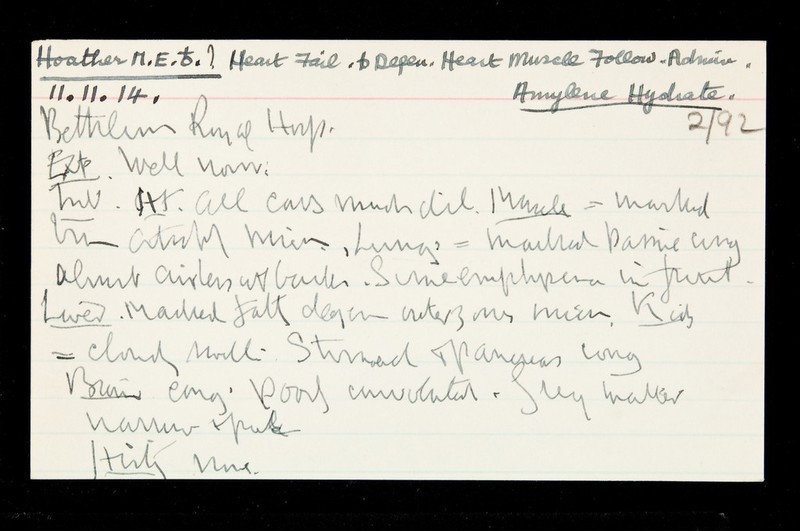 Hoather M.E.S.? Heart Fail. to Degen. Heart Muscle Follow. Admin.
11.11.14. Amylene Hydrate.
Bethlem Royal Hosp. 2/92
Ext. Well nour:
Int. Ht. All cavs much dil. Muscle = marked
brn atroph micr., Lungs = marked passive cong
almost airless at backs. Some emphysema in front.
Liver. Marked fatty degen outer zones micr, Kids
= cloudy swell. Stomach & pancreas cong
Brain cong. Poorly convoluted. Grey matter
narrow & pale
Hist, None.